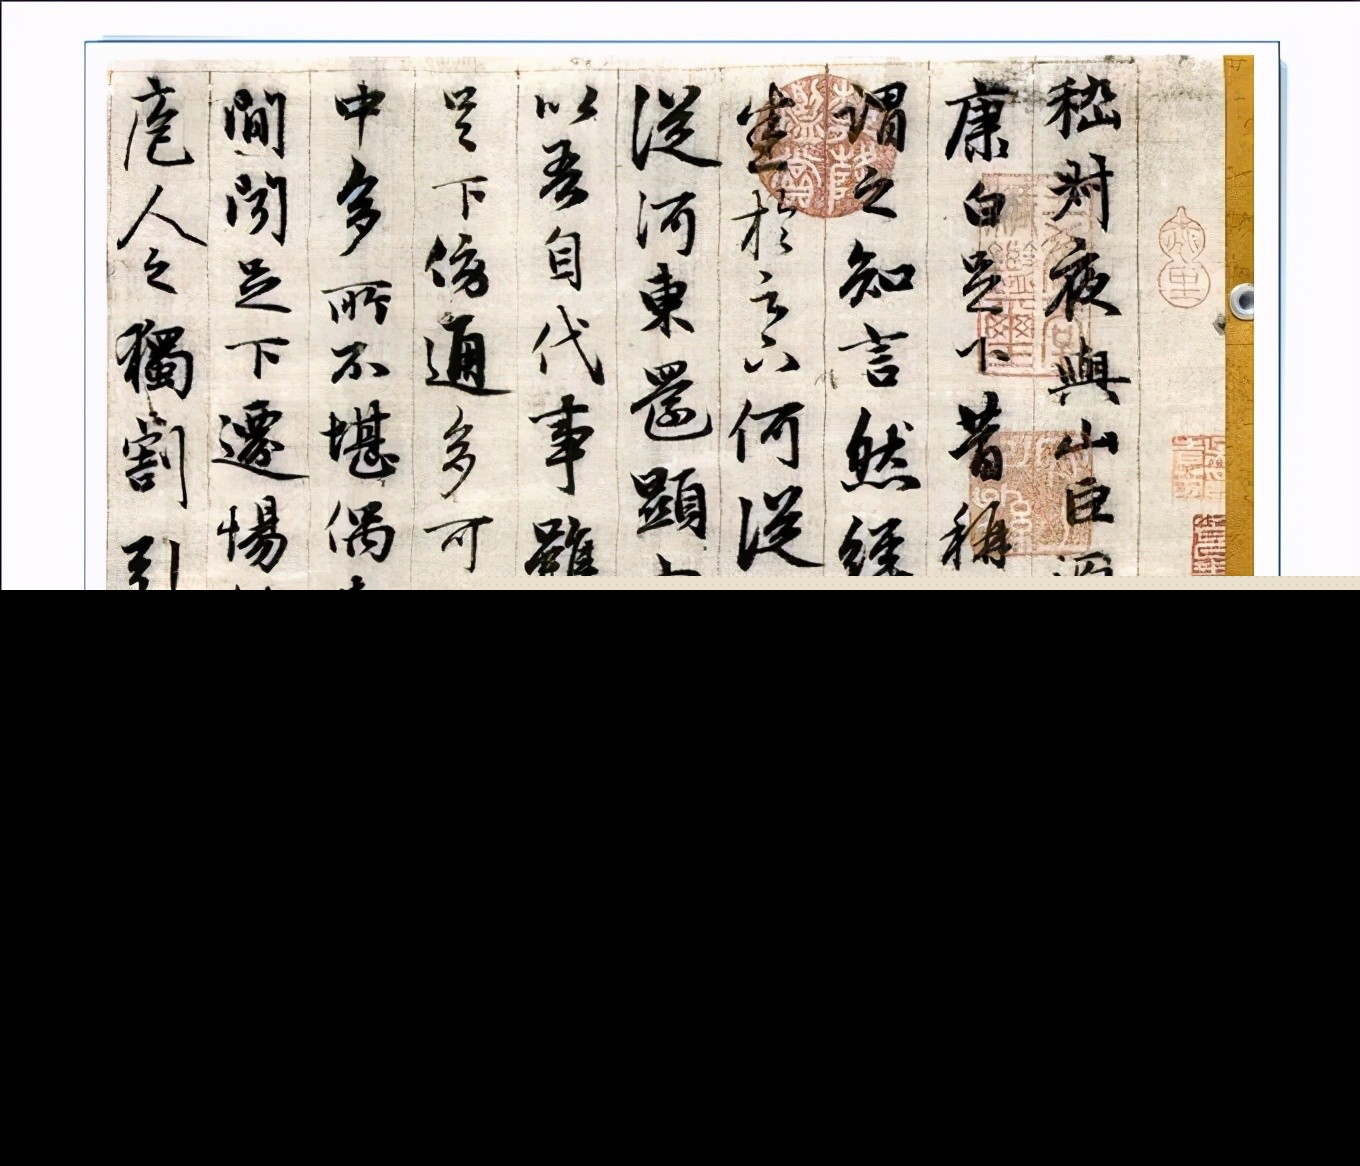 嵇叔夜與山巨源
康白足下昔稱
謂之知言然經
悉於足下何從
從河東還顯
以吾自代事雖
足下傍通多可
中多所不堪偶
間聞足下遷惕
庖人之獨割引